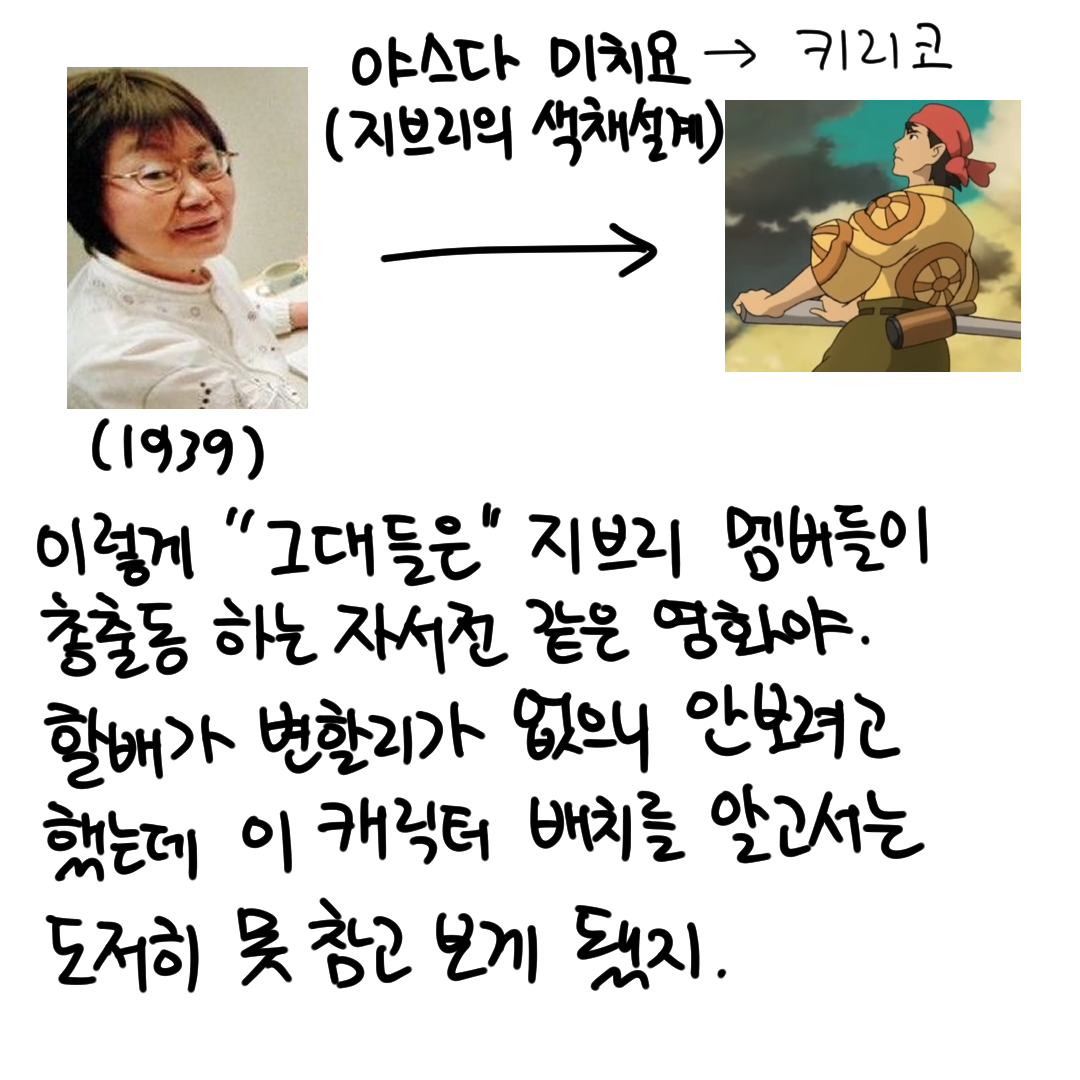 야스다 미치요 → 키리코
(지브리의 색채설계)
(1939)
이렇게 "그대들은" 지브리 멤버들이
총출동 하는 자서전 같은 영화야.
할배가 변할리가 없으니 안보려고
했는데 이 캐릭터 배치를 알고서는
도저히 못 참고 보게 됐지.